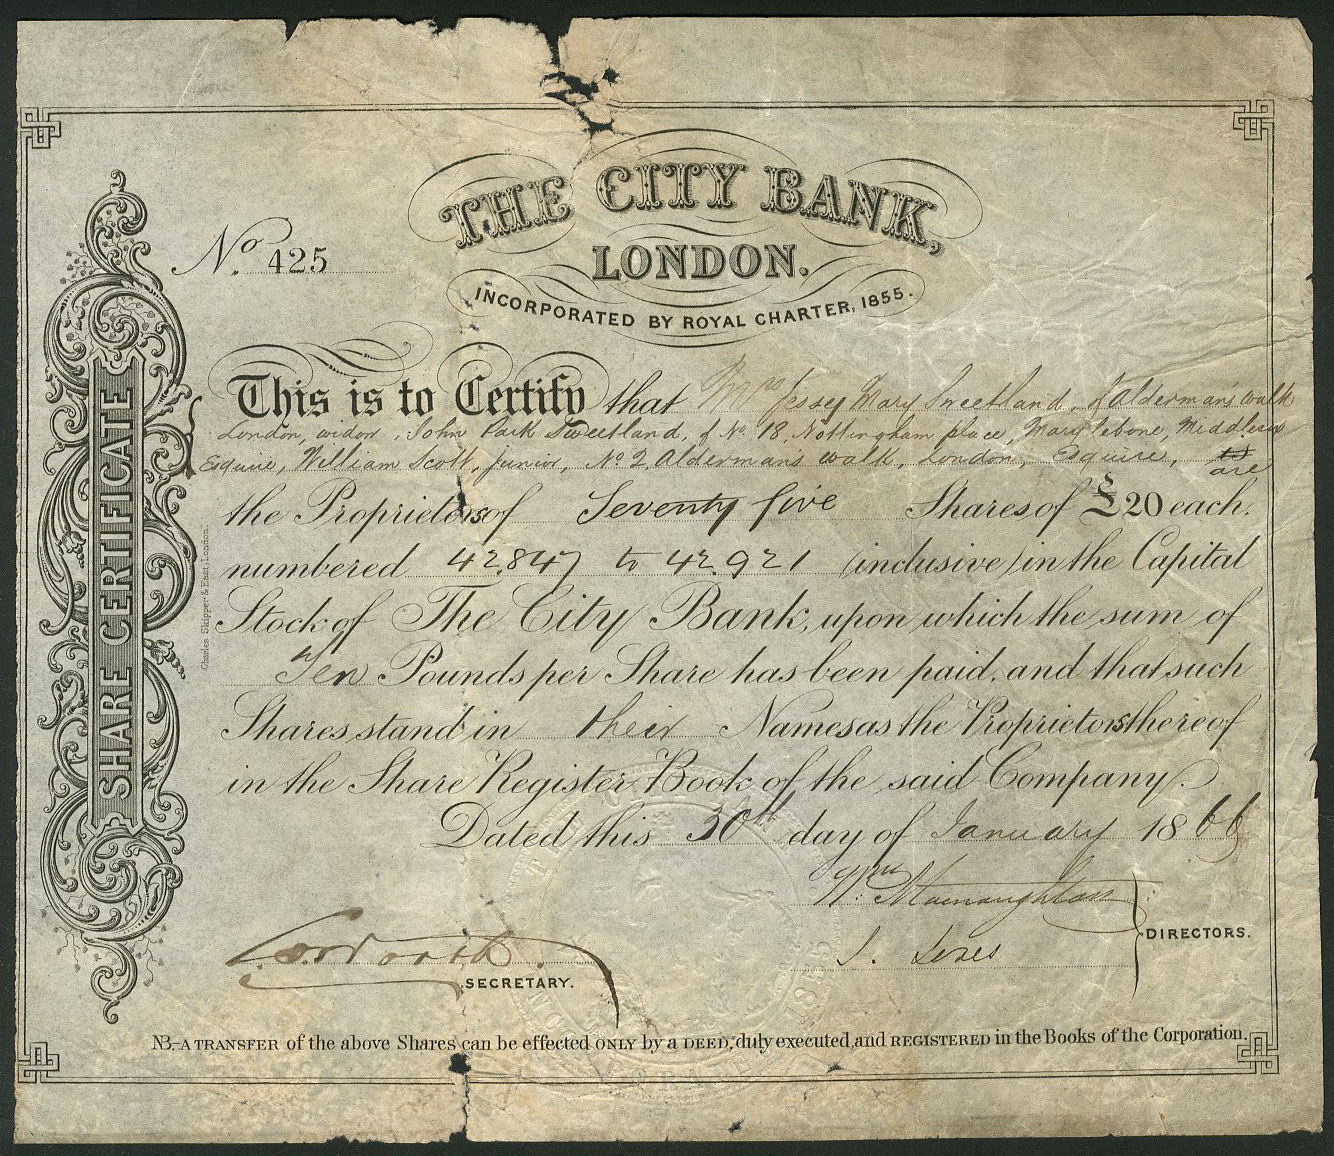 THE CITY BANK,
LONDON.
INCORPORATED BY ROYAL CHARTER, 1855.
No. 425
SHARE CERTIFICATE
Charles Skipper & East, London.
This is to Certify that Mrs Jessey Mary Sweetland, of Alderman's walk
London, widow, John Park Sweetland, of No. 18, Nottingham place, Marylebone, Middlesex
Esquire, William Scott, junior, No 2 Alderman's walk, London, Esquire, are
the Proprietors of Seventy five Shares of £20 each.
numbered 42.847 to 42.921 (inclusive) in the Capital
Stock of The City Bank, upon which the sum of
Ten Pounds per Share has been paid, and that such
Shares stand in their Names as the Proprietors thereof
in the Share Register Book of the said Company.
Dated this 30th day of January 1866
Wm Macnaughtan
J. Jones
DIRECTORS.
SECRETARY.
NB.—A TRANSFER of the above Shares can be effected ONLY by a DEED, duly executed, and REGISTERED in the Books of the Corporation.